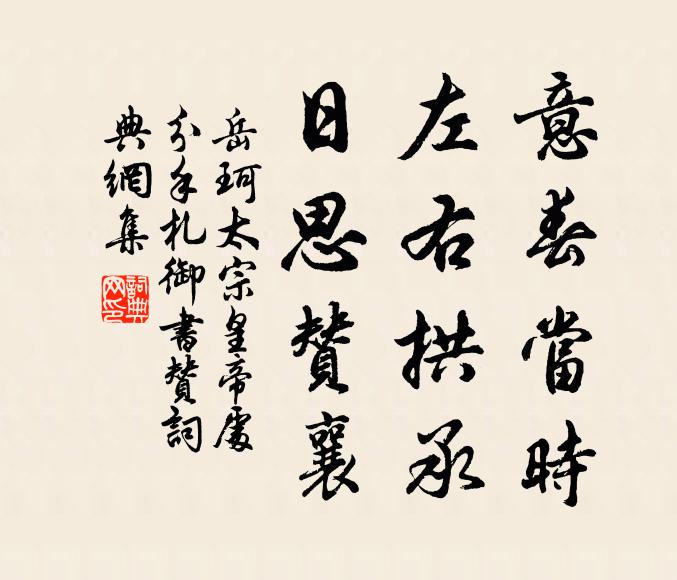 意春當時
左右拱承
日思贊襄
岳珂太宗皇帝處
分手札御書贊詞
典網集
詞典
网印